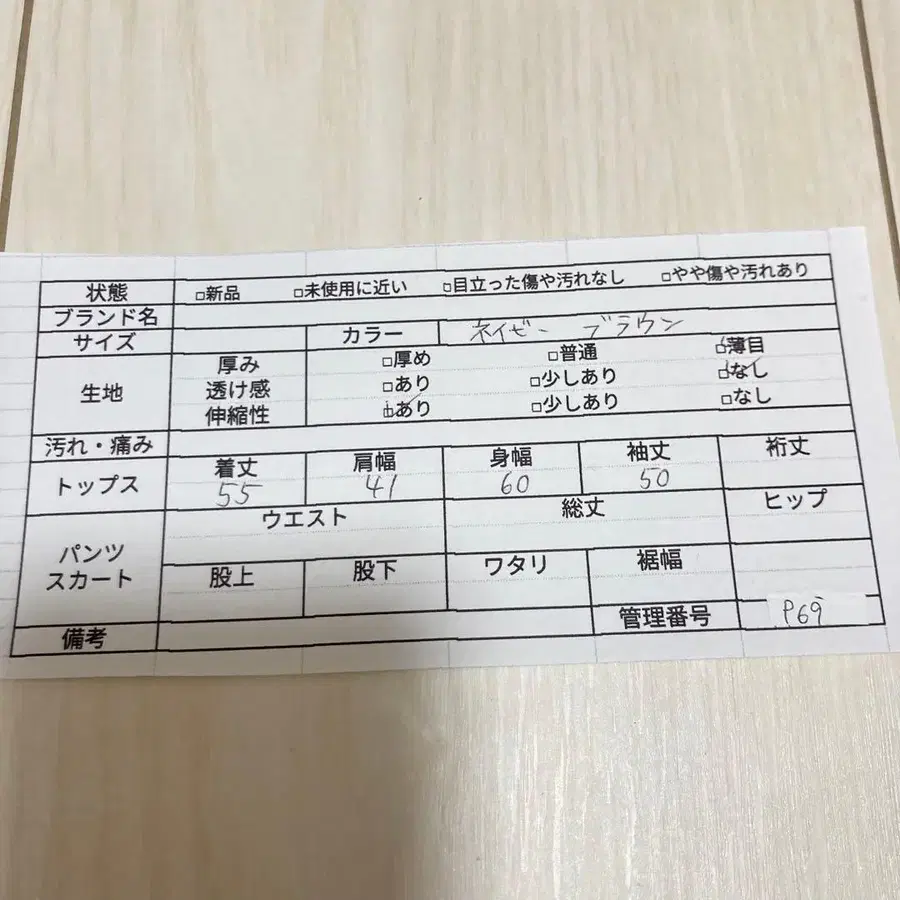 状態 □新品 □未使用に近い □目立った傷や汚れなし □やや傷や汚れあり
ブランド名
サイズ カラー ネイビー ブラウン
生地 厚み □厚め □普通 ☑薄目
透け感 □あり □少しあり ☑なし
伸縮性 ☑あり □少しあり □なし
汚れ・痛み
トップス 着丈 肩幅 身幅 袖丈 裄丈
55 41 60 50
パンツ スカート ウエスト 総丈 ヒップ
股上 股下 ワタリ 裾幅
備考 管理番号 P69